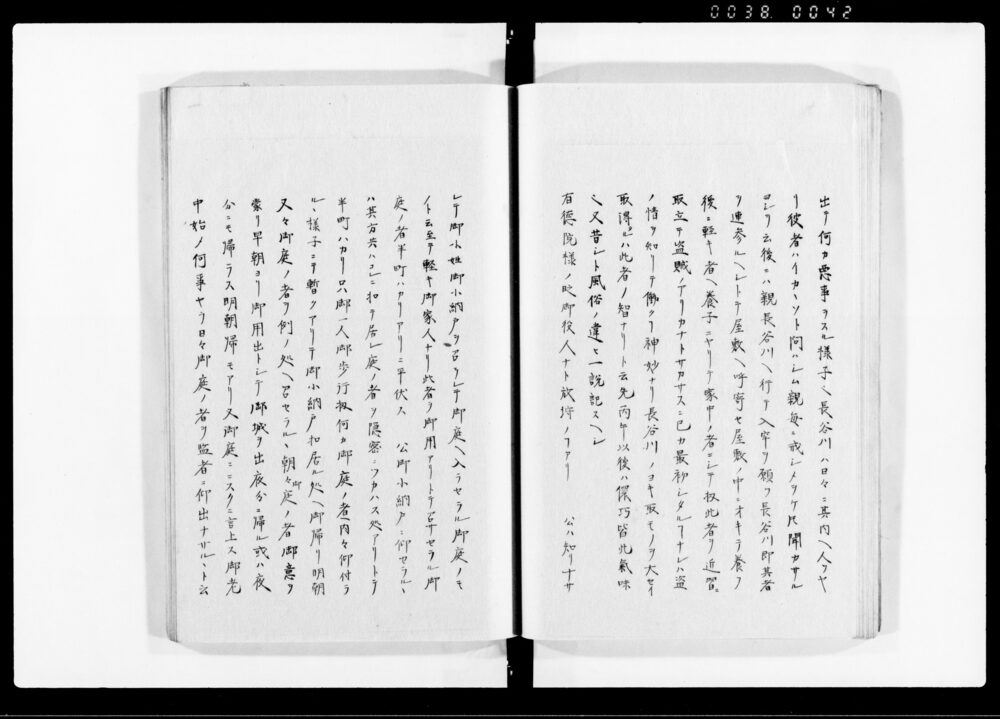 0038 0042
出テ何カ悪事ヲスル様子ヘ長谷川ハ日々ニ其内ヘ人ヲヤ
リ彼者ハイカヽソト問ハシム親毎ニ戒シメヲケ𪜈聞カサル
ヨシヲ云後ニハ親長谷川ヘ行テ入牢ヲ願フ長谷川即其者
ヲ連参ルヘシトテ屋敷ヘ呼寄セ屋敷ノ中ニオキテ養フ
後ニ軽キ者ヘ養子ニヤリテ家中ノ者ニシテ扨此者ヲ近習ニ
取立テ盗賊アリカナトサカサスニ已カ最初シタルフナレハ盗
ノ情ヲ知リテ働ク神妙ナリ長谷川ノヨキ取モノヲ大セイ
取得シハ此者ノ智ナリト云先丙午以後ハ保巧皆此氣味
ヘ又昔シト風俗ノ違ヒ一説記スヘシ
有徳院様ノ時御役人ナト放埒ノフアリ 公ハ知リナサ
レテ御小姓御小納戸ヲ召ツレテ御庭ヘ入ラセラル御庭ノモ
イト云至テ軽キ御家人ナリ此者ヲ御用アリトテ召サセラル御
庭ノ者半町ハカリアリニ平伏ス 公御小納戸ニ仰セラル
ハ其方共ハコレニ扣テ居レ庭ノ者ヲ隠密ニツカハス処アリトテ
半町ハカリ只御一人御歩行扨何カ御庭ノ者ヘ内々仰付ラ
ルヽ様子ニテ暫クアリテ御小納戸扣居ル処ヘ御帰リ明朝
又々御庭ノ者ヲ例ノ処ヘ召セラルヽ朝々御庭ノ者御意ヲ
蒙リ早朝ヨリ御用出トシテ御城ヲ出夜分ニ帰ル或ハ夜
分ニモ帰ラス明朝帰モアリ又御庭ニニスクニ言上ス御老
中始メ何事ヤラ日々御庭ノ者ヲ監者ニ仰出ナサルヽト云